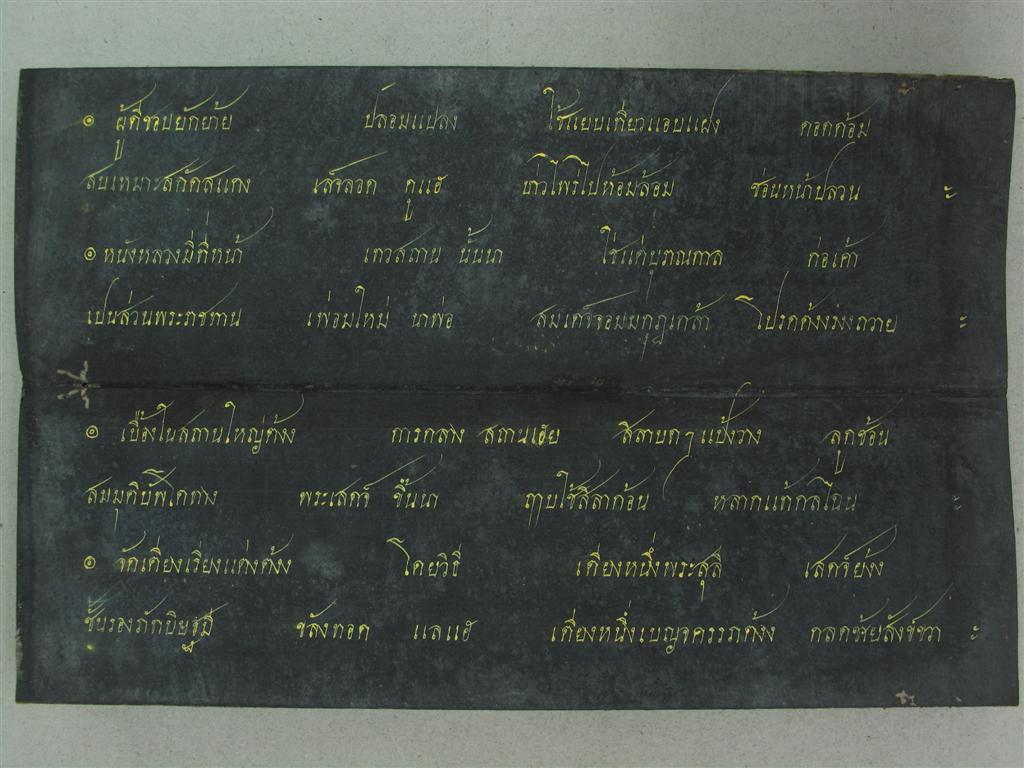 ๏ ผู้ดีชอบยักย้าย ปลอมแปลง
ใช้แยบเที่ยวแอบแฝง ดอดด้อม
สบเหมาะสกัดสแดง เสจ์ลอด ดูแฮ
บ่าวไพร่ไปห้อมล้อม ซ่อนหน้าปลวน ฯ
๏ หนังหลวงมีที่หน้า เทวสถาน นั้นนา
ใช้แต่บุราณกาล ต่อเค้า
เปนส่วนพระราชทาน เพ่อมใหม่ นาพ่อ
สมเดจ์จอมมกุฎเกล้า โปรดตั้ง ถวาย ฯ
๏ เบื้องในสถานใหญ่ตั้ง การกลาง สถานเฮย
ศิลาบดๆ แป้งวาง ลูกซ้อน
สมมุติบัพโตทาง พระเสดจ์ ขึ้นนา
ฤๅบใช้ศิลาก้อน หลากแท้กลไฉน ฯ
๏ จัดเตียงเรียงแต่งตั้ง โดยวิธี
เตียงหนึ่งพระสุลี เสดจ์ยั้ง
ชั้นรองภัทบิษฐมี ขลังทอด แลแฮ
เตียงหนึ่งเบญจครรภตั้ง กลดชัยสังข์ขวา ฯ